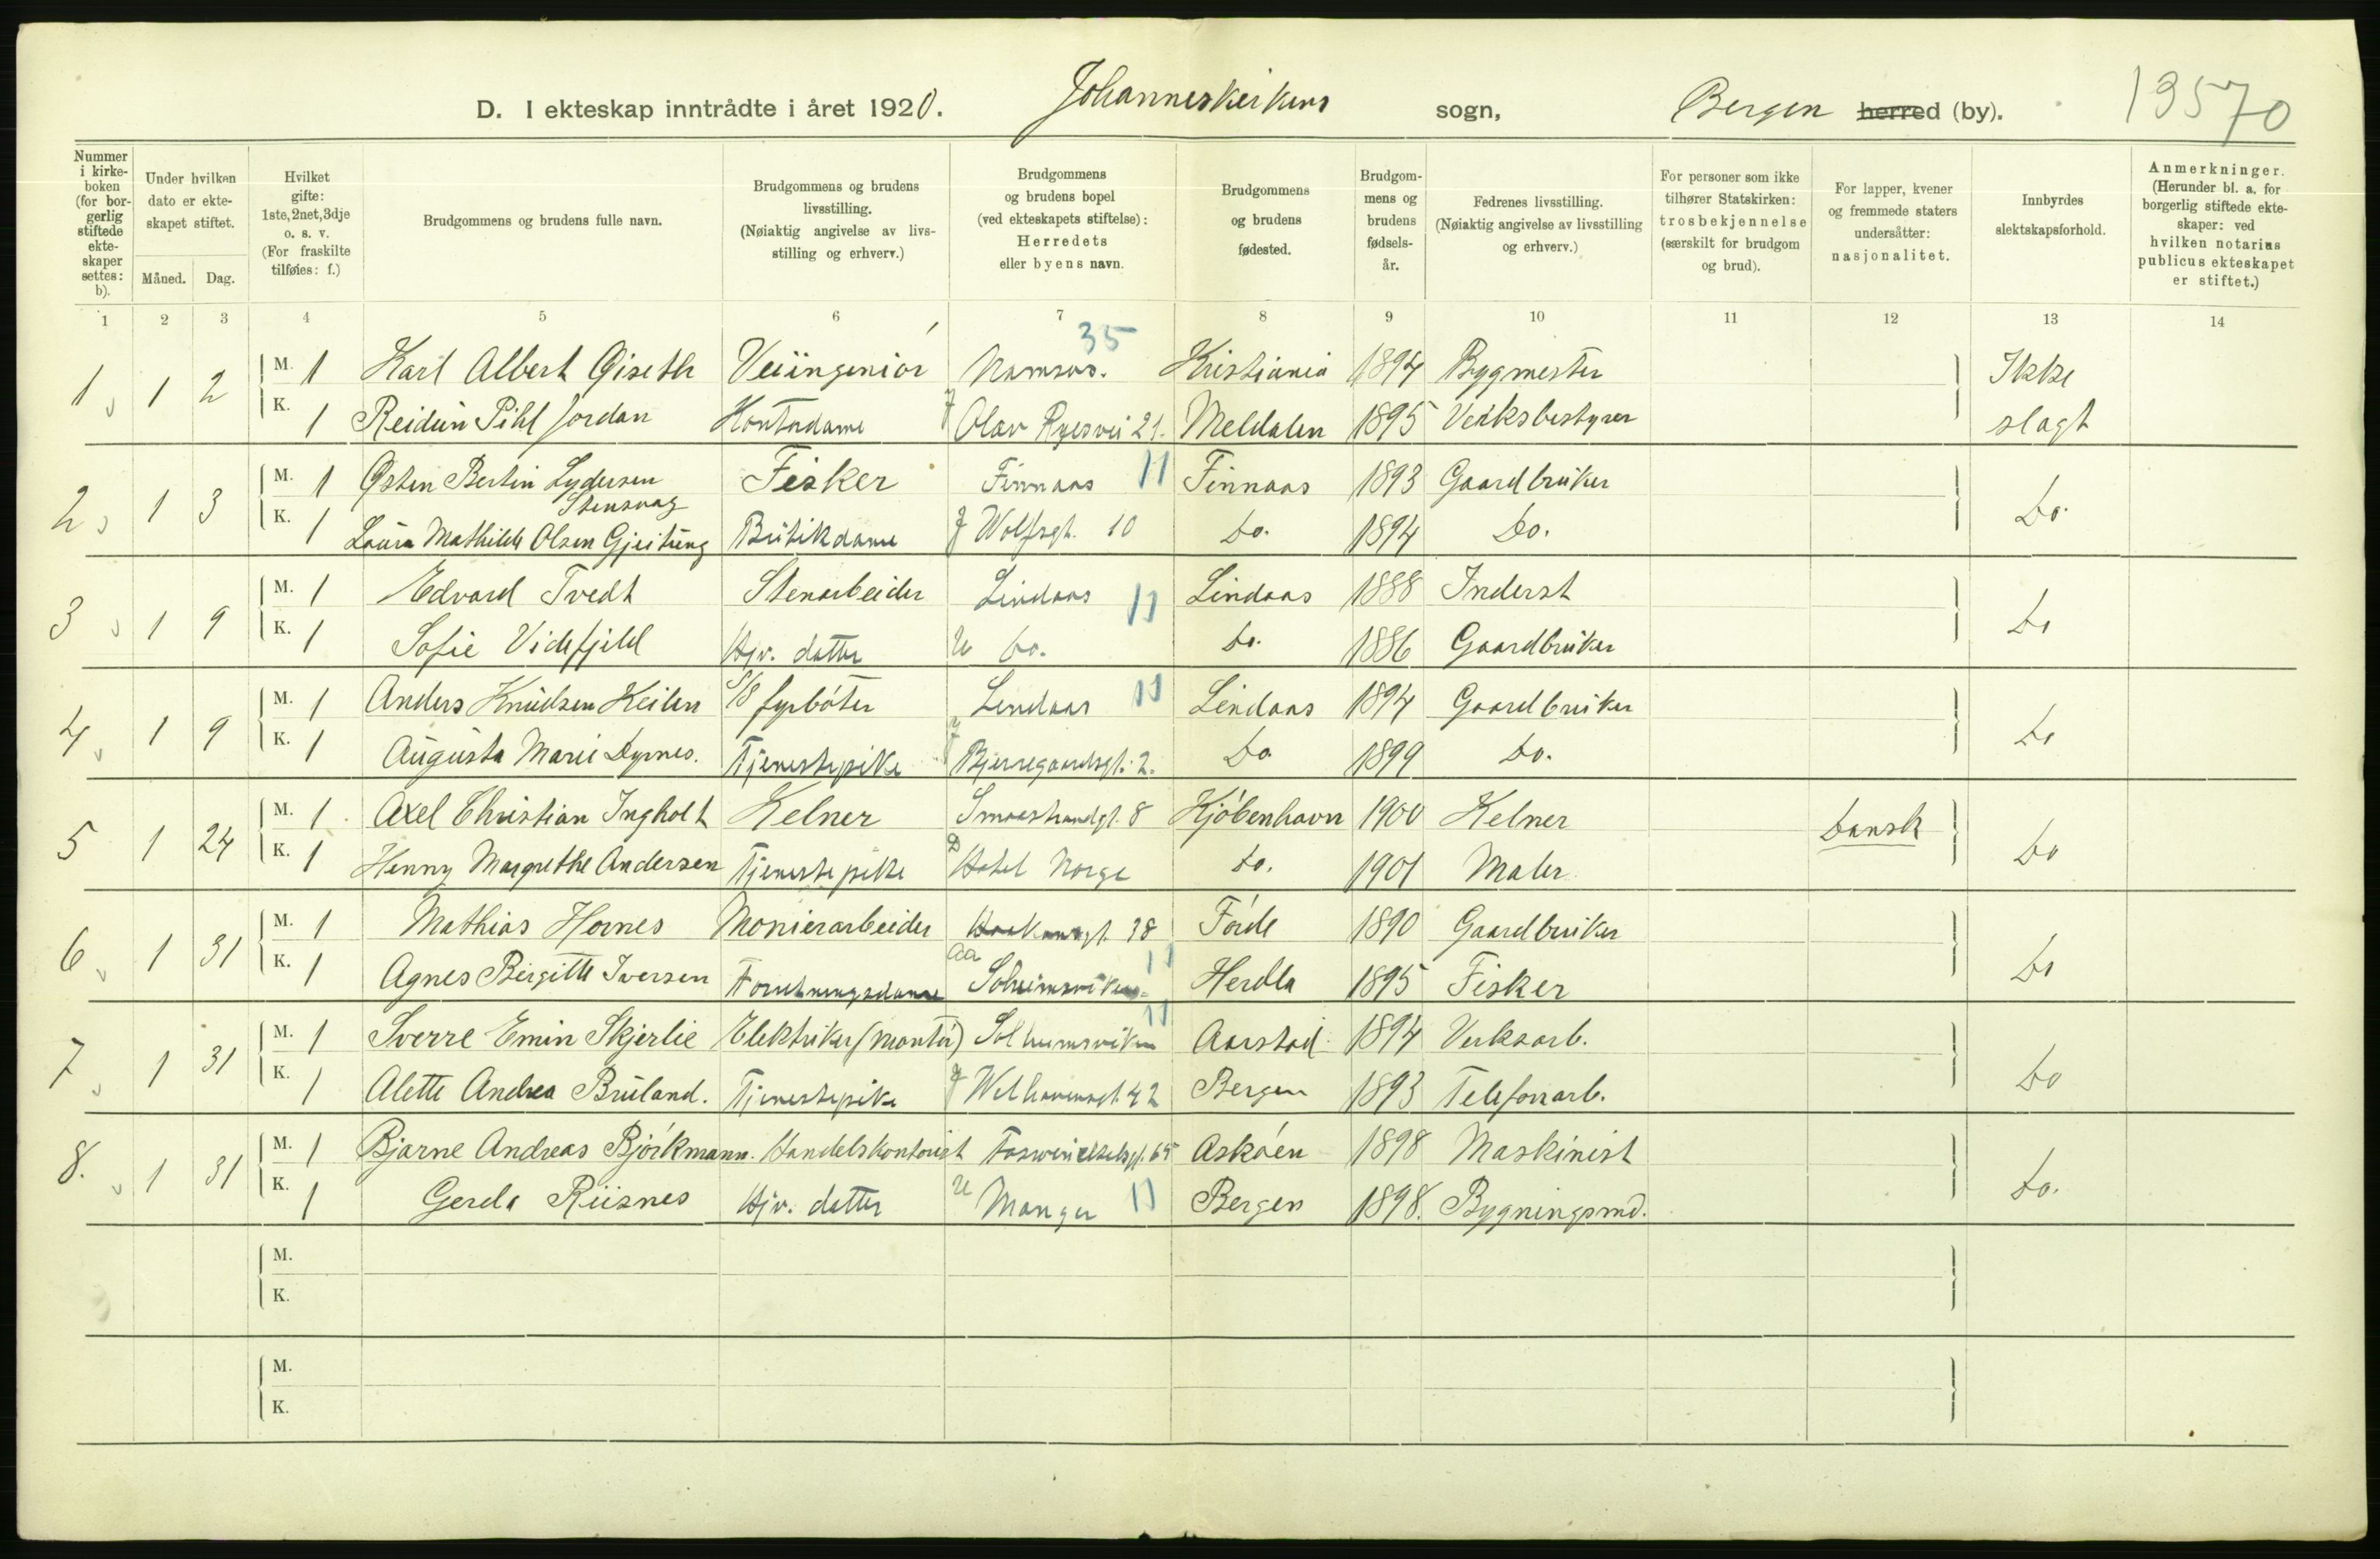 D. I ekteskap inntrådte i året 1920. Johanneskirkens sogn, Bergen herred (by). 13570
Nummer i kirkeboken (for borgerlig stiftede ekteskaper settes: b). Under hvilken dato er ekteskapet stiftet. Måned. Dag. Hvilket gifte: 1ste, 2net, 3dje o. s. v. (For fraskilte tilføies: f.) Brudgommens og brudens fulle navn. Brudgommens og brudens livsstilling. (Nøiaktig angivelse av livsstilling og erhverv.) Brudgommens og brudens bopel (ved ekteskapets stiftelse): Herredets eller byens navn. Brudgommens og brudens fødested. Brudgommens og brudens fødselsår. Fedrenes livsstilling. (Nøiaktig angivelse av livsstilling og erhverv.) For personer som ikke tilhører Statskirken: trosbekjennelse (særskilt for brudgom og brud). For lapper, kvener og fremmede staters undersåtter: nasjonalitet. Innbyrdes slektskapsforhold. Anmerkninger. (Herunder bl. a. for borgerlig stiftede ekteskaper: ved hvilken notarius publicus ekteskapet er stiftet.)
1 2 3 4 5 6 7 8 9 10 11 12 13 14
35
1 1 2 M. 1 Karl Albert Giseth Veiingeniör Namsos. Kristiania 1894 Bygmester Ikke
K. 1 Reidun Pihl Jordan Kontordame Olav Ryesvei 21. Meldalen 1895 Verksbestyrer slagt
2 1 3 M. 1 Østen Bertin Lydersen Stensvag Fisker Finnaas 11 Finnaas 1893 Gaardbruker Do.
K. 1 Laura Mathilde Olsen Gjeitung Butikdame Wolfsgt. 10 Do. 1894 Do.
3 1 9 M. 1 Edvard Tvedt Stenarbeider Lindaas 11 Lindaas 1888 Inderst Do
K. 1 Sofie Videfjeld Hjv. datter U Do. Do. 1886 Gaardbruker
4 1 9 M. 1 Anders Knudsen Keilen S/S fyrböter Lindaas 11 Lindaas 1894 Gaardbruker Do
K. 1 Augusta Marie Dyrnes. Tjenestepike Bjerregaardsgt. 2. Do 1899 Do.
5 1 24 M. 1 Axel Christian Ingholt Kelner Smaastrandgt. 8 Kjöbenhavn 1900 Kelner Dansk Do
K. 1 Henny Margrethe Andersen Tjenestepike Hotel Norge Do. 1901 Maler
6 1 31 M. 1 Mathias Hornes Monierarbeider Haakonsgt. 38 Förde 1890 Gaardbruker Do
K. 1 Agnes Birgitte Iversen Forretningsdame Aa Solheimsviken 11 Herdla 1895 Fisker
7 1 31 M. 1 Sverre Emin Skjerlie Elektriker (montör) Solheimsviken 11 Aarstad 1894 Verksarb. Do
K. 1 Alette Andrea Bruland. Tjenestepike Welhavensgt. 42 Bergen 1893 Telefonarb.
8. 1 31 M. 1 Bjarne Andreas Björkmann. Handelskontorist Fosswinckelsgt. 65 Asköen 1898 Maskinist Do.
K. 1 Gerda Riisnes Hjv. datter U Manger 11 Bergen 1898. Bygningsmd.
M.
K.
M.
K.